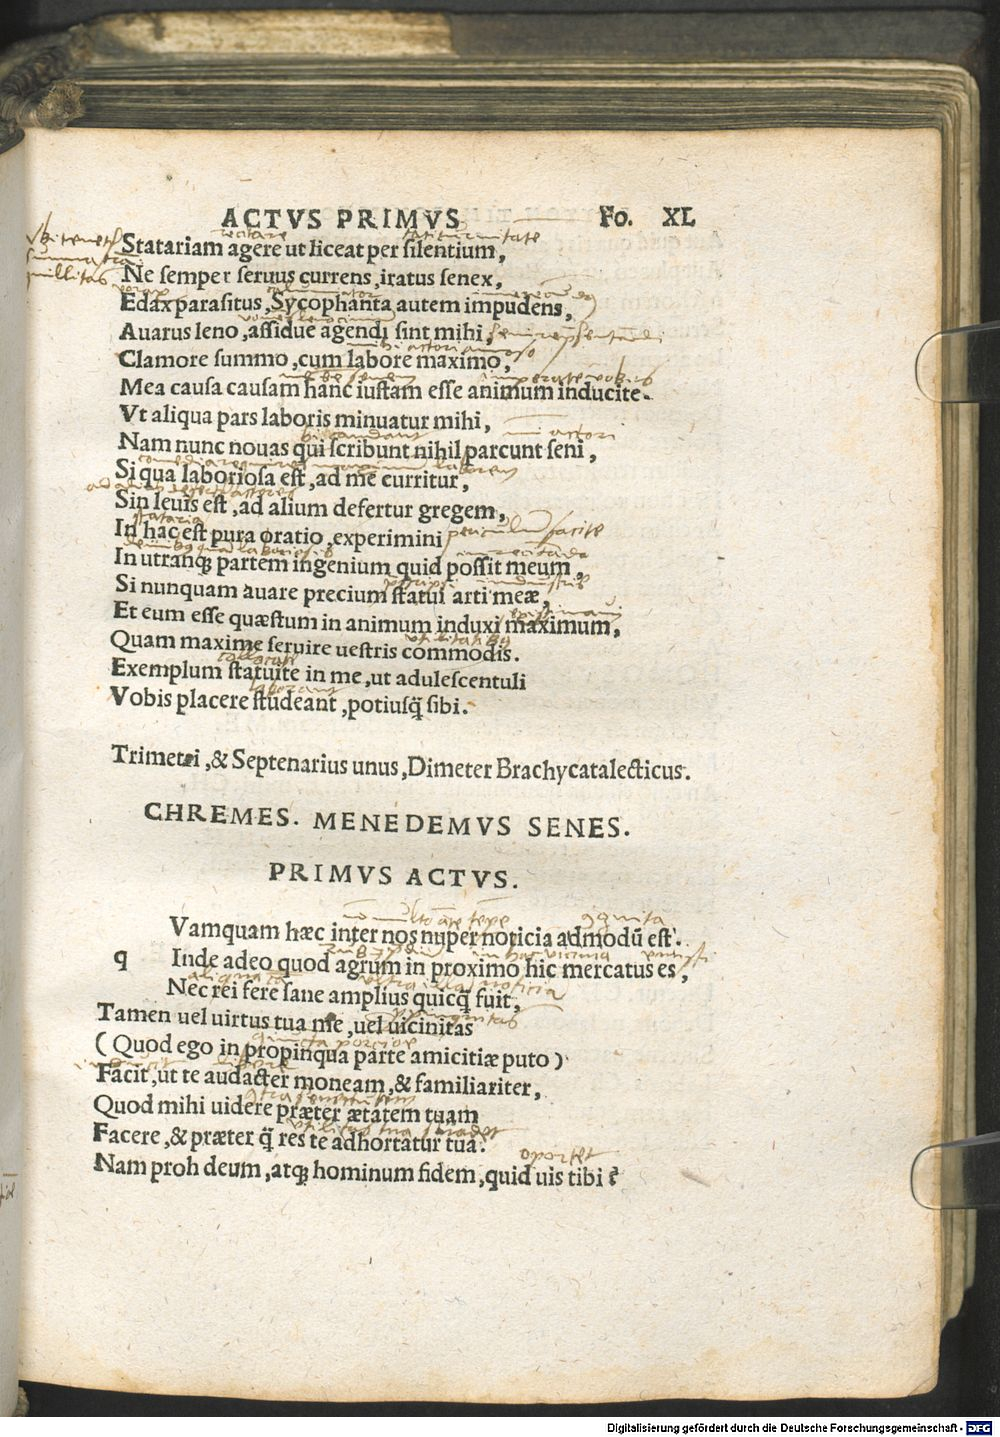 ACTVS PRIMVS Fo. XL
recitare taciturnitate
Statariam agere ut liceat per silentium,
Ne semper seruus currens, iratus senex,
vorax
Edax parasitus, Sycophanta autem impudens,
Auarus leno, assidue agendi sint mihi,
Clamore summo, cum labore maximo,
Mea causa causam hanc iustam esse animum inducite.
Vt aliqua pars laboris minuatur mihi,
Nam nunc nouas qui scribunt nihil parcunt seni,
Si qua laboriosa est, ad me curritur,
Sin leuis est, ad alium defertur gregem,
stataria
In hac est pura oratio, experimini periculum facite
In utranq; partem ingenium quid possit meum,
Si nunquam auare precium statui arti meæ,
Et eum esse quæstum in animum induxi maximum,
Quam maxime seruire uestris commodis.
Exemplum statuite in me, ut adulescentuli
Vobis placere studeant, potiusq̃ sibi.
Trimetri, & Septenarius unus, Dimeter Brachycatalecticus.
CHREMES. MENEDEMVS SENES.
PRIMVS ACTVS.
Vamquam hæc inter nos nuper noticia admodũ est.
q Inde adeo quod agrum in proximo hic mercatus es,
Nec rei fere sane amplius quicq̃ fuit,
Tamen uel uirtus tua me, uel uicinitas
(Quod ego in propinqua parte amicitiæ puto)
Facit, ut te audacter moneam, & familiariter,
Quod mihi uidere præter ætatem tuam
Facere, & præter q̃ res te adhortatur tua.
oportet
Nam proh deum, atq; hominum fidem, quid uis tibi?
Digitalisierung gefördert durch die Deutsche Forschungsgemeinschaft - DFG